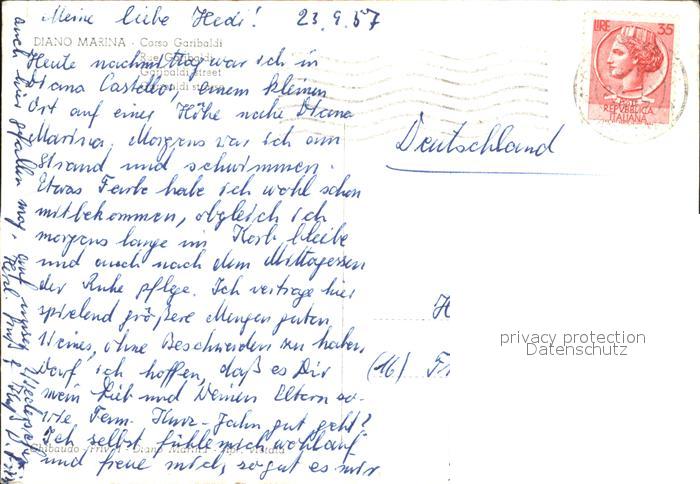 Meine liebe Hedi! 23.9.57
DIANO MARINA - Corso Garibaldi
Rue Garibaldi
Garibaldi street
Garibaldi
Heute nachmittag war ich in
Diano Castello, einem kleinen
Ort auf einer Höhe nahe Diana
Marina. Morgens war ich am
Strand und schwimmen.
Etwas Farbe habe ich wohl schon
mitbekommen, obgleich ich
morgens lange im Korb bleibe
und auch nach dem Mittagessen
der Ruhe pflege. Ich vertrage hier
spielend größere Mengen guten
Weines, ohne Beschwerden zu haben.
Darf ich hoffen, daß es Dir
mein Lieb und Deinen Eltern so-
wie Fam. Kurz-Jahn gut geht?
Ich selbst fühle mich wohlauf
Ghibaudo - Diano Marina
und freue mich, so gut es mir
auch hier gefallen mag, auf unser Wiedersehen
Herzl. Gruß & Kuß D.
LIRE 35
REPVBBLICA
ITALIANA
Deutschland
H
(16) Fr
privacy protection
Datenschutz